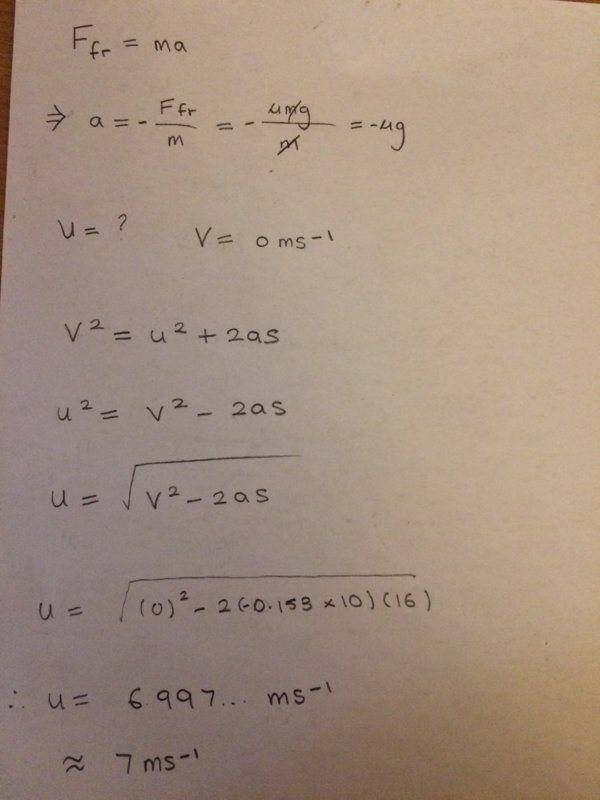 F_fr = ma
⇒ a = - F_fr/m = - μmg/m = -μg
u = ?    V = 0 ms⁻¹
V² = u² + 2as
u² = V² - 2as
u = √(V² - 2as)
u = √((0)² - 2(-0.153 × 10)(16))
∴ u = 6.997... ms⁻¹
≈ 7 ms⁻¹